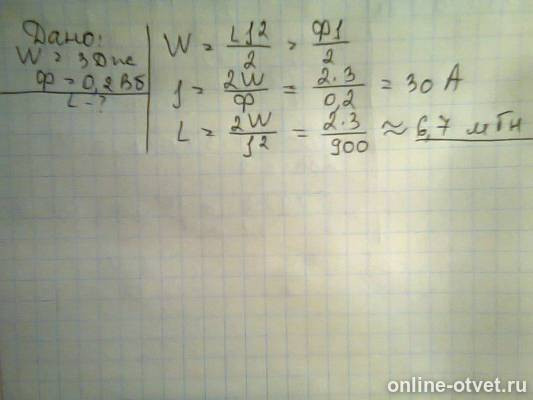 Дано:
W = 3 Дж
Ф = 0,2 Вб
L - ?
W = LI²/2 = ФI/2
I = 2W/Ф = 2·3/0,2 = 30 А
L = 2W/I² = 2·3/900 ≈ 6,7 мГн
online-otvet.ru